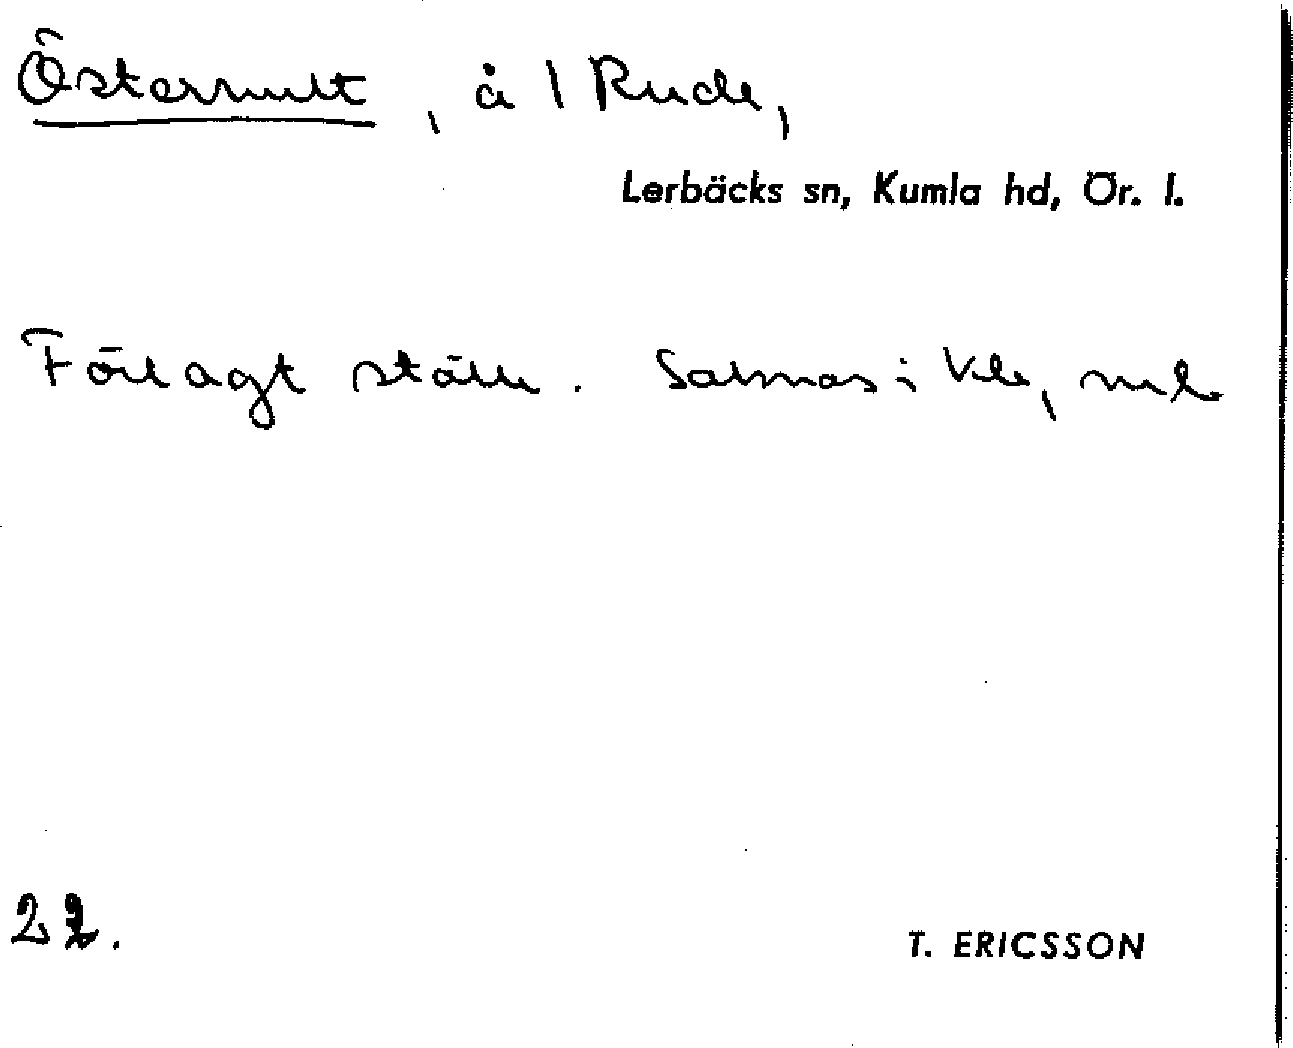 Österhult, å 1 Rude,
Lerbäcks sn, Kumla hd, Ör. l.
Förlagt ställe. Saknas i
22.
T. ERICSSON